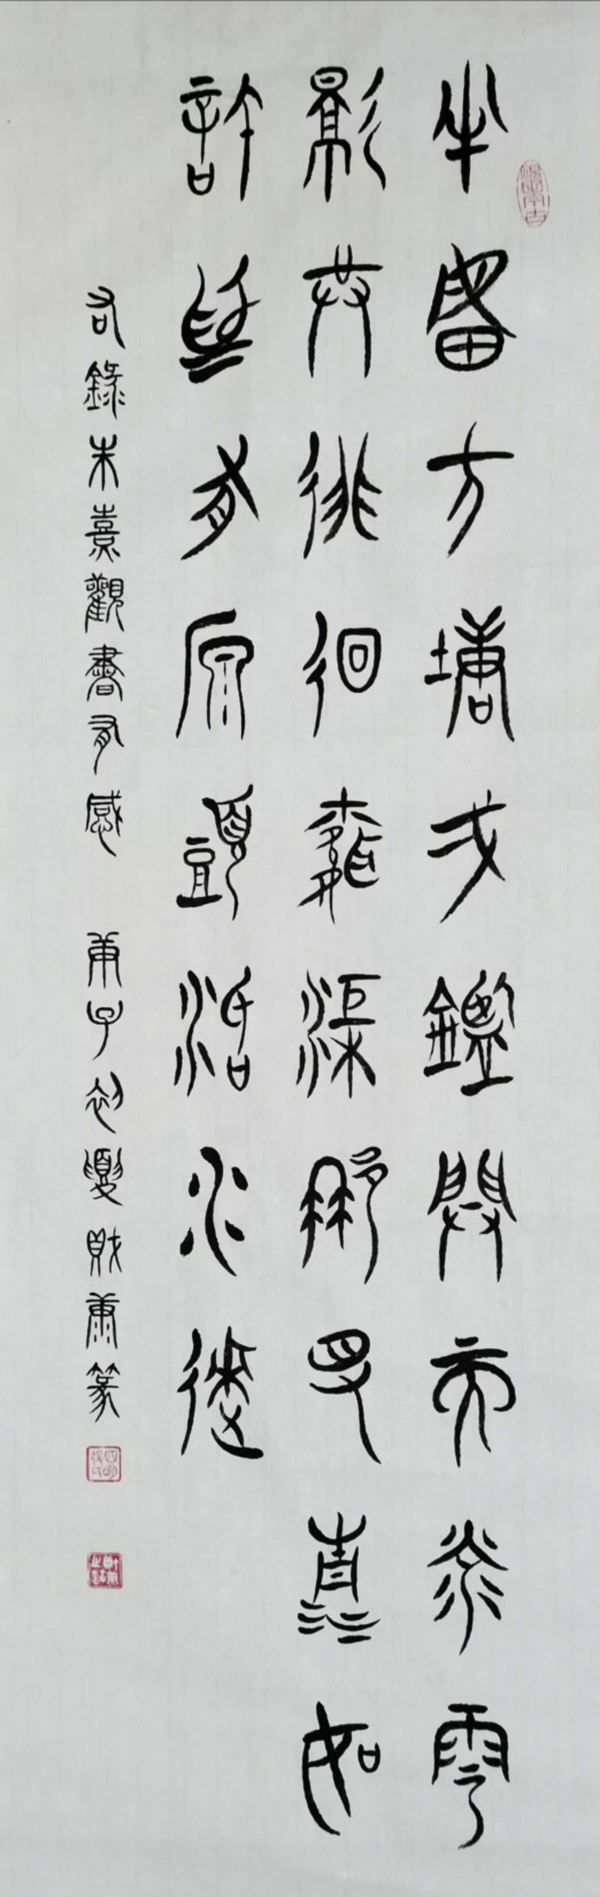 半畝方塘弌鑑開天光雲
影共徘徊問渠那得清如
許為有原頭活水來
右錄朱熹觀書有感 庚子初夏財康篆